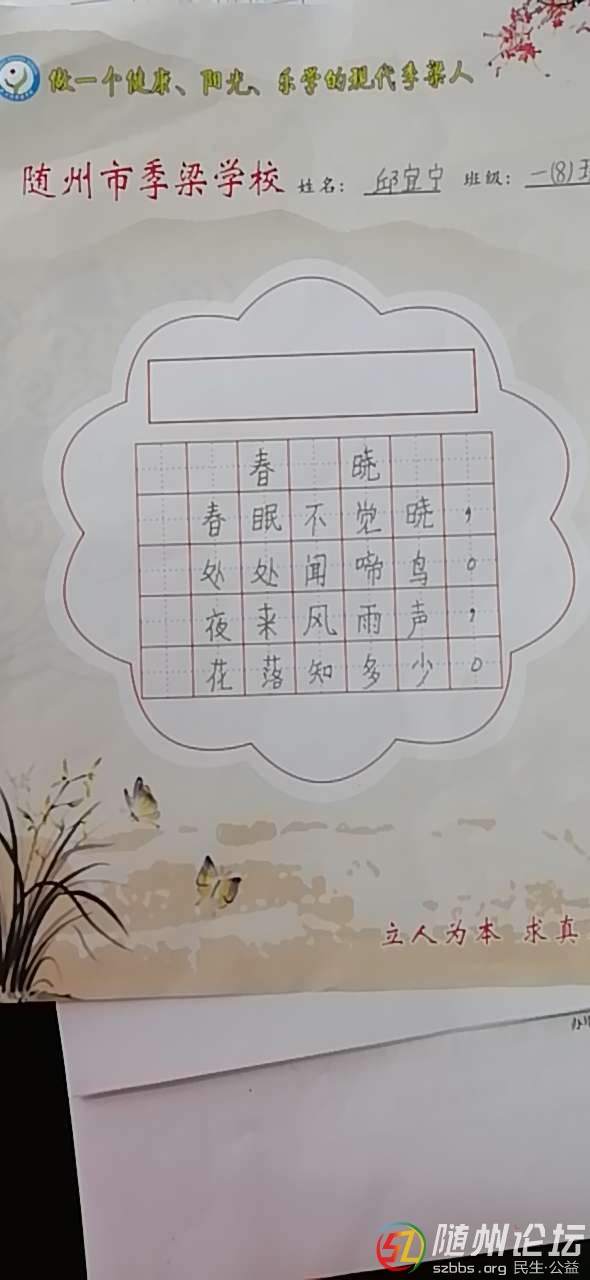 做一个健康、阳光、乐学的现代季梁人
随州市季梁学校 姓名: 邱宜宁 班级: 一(8)班
春晓
春眠不觉晓，
处处闻啼鸟。
夜来风雨声，
花落知多少。
立人为本 求真
随州论坛
szbbs.org 民生·公益